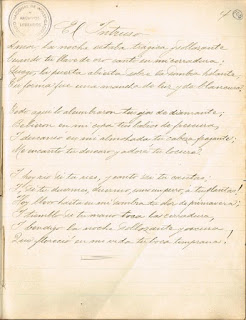 El Intruso
Amor, la noche estaba trágica y sollozante
Cuando tu llave de oro cantó en mi cerradura;
Luego, la puerta abierta sobre la sombra helante,
Tu forma fue una mancha de luz y de blancura.
Todo aquí lo alumbraron tus ojos de diamante;
Bebieron en mi copa tus labios de frescura,
Y descansó en mi almohada tu cabeza fragante;
Me encantó tu descaro y adoré tu locura.
Y hoy río si tú ríes, y canto si tú cantas;
Y si tú duermes, duermo como un perro a tus plantas!
Hoy llevo hasta en mi sombra tu olor de primavera;
Y tiemblo si tu mano toca la cerradura,
Y bendigo la noche sollozante y oscura
Que floreció en mi vida tu boca temprana!